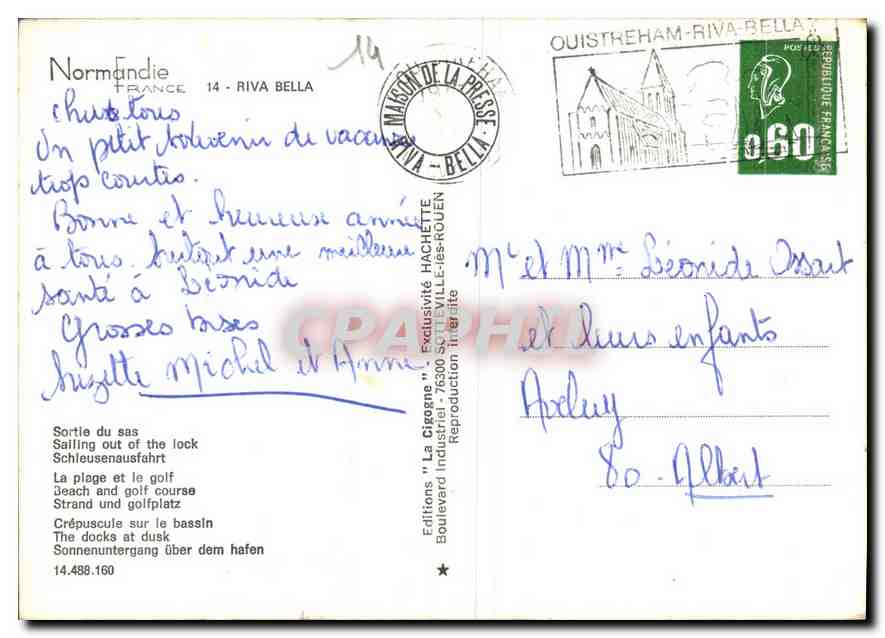 Normandie
FRANCE 14 - RIVA BELLA
14
chers tous
Un petit souvenir de vacances
trop courtes.
Bonne et heureuse année
à tous. Surtout une meilleure
santé à Léonide
Grosses bises
Suzette Michel et Anne.
Sortie du sas
Sailing out of the lock
Schleusenausfahrt
La plage et le golf
Beach and golf course
Strand und golfplatz
Crépuscule sur le bassin
The docks at dusk
Sonnenuntergang über dem hafen
14.488.160
Editions "La Cigogne". Exclusivité HACHETTE
Boulevard Industriel - 76300 SOTTEVILLE-lès-ROUEN
Reproduction interdite
MAISON DE LA PRESSE
RIVA - BELLA
OUISTREHAM-RIVA-BELLA
POSTES
REPUBLIQUE FRANÇAISE
0,60
Mr et Mme Léonide Ossart
et leurs enfants
Aveluy
80 - Albert
CPAPHIL